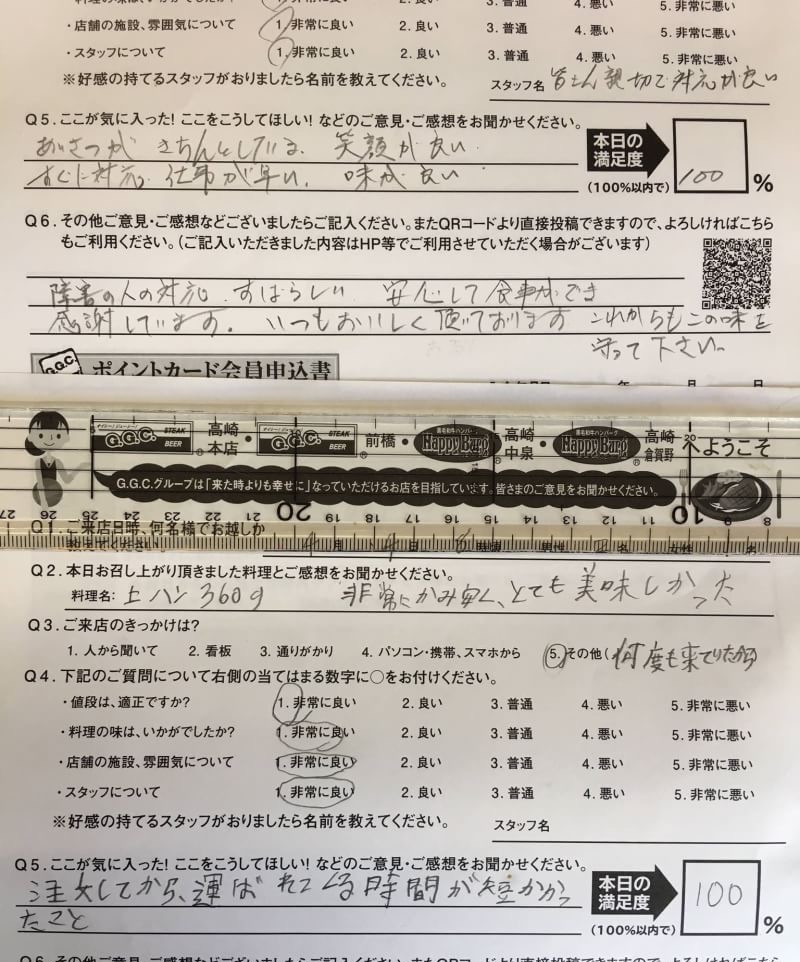 ・店舗の施設、雰囲気について 1. 非常に良い 2. 良い 3. 普通 4. 悪い 5. 非常に悪い
・スタッフについて 1. 非常に良い 2. 良い 3. 普通 4. 悪い 5. 非常に悪い
※好感の持てるスタッフがおりましたら名前を教えてください。 スタッフ名 皆さん親切で対応が良い
Q5. ここが気に入った! ここをこうしてほしい! などのご意見・ご感想をお聞かせください。
あいさつが きちんとしている 笑顔が良い
すぐに対応 仕事が早い、味が良い
本日の
満足度
(100%以内で) 100 %
Q6. その他ご意見・ご感想などございましたらご記入ください。またQRコードより直接投稿できますので、よろしければこちら
もご利用ください。(ご記入いただきました内容はHP等でご利用させていただく場合がございます)
障害の人の対応 すばらしい 安心して食事ができ
感謝しています。いつもおいしく頂いております これからもこの味を
守って下さい。
G.G.C. ポイントカード会員申込書
G.G.C. STEAK BEER 高崎本店・G.G.C. STEAK BEER 前橋・黒毛和牛ハンバーグ Happy Burg 高崎中泉・黒毛和牛ハンバーグ Happy Burg 高崎倉賀野 へようこそ
G.G.C.グループは「来た時よりも幸せに」なっていただけるお店を目指しています。皆さまのご意見をお聞かせください。
27 26 25 24 23 22 21 20 19 18 17 16 15 14 13 12 11 10 9 8
Q1. ご来店日時、何名様でお越しか
4月 4日 6時頃 男性 2名 女性 名
Q2. 本日お召し上がり頂きました料理とご感想をお聞かせください。
料理名: 上ハン360g 非常にかみ安く、とても美味しかった
Q3. ご来店のきっかけは?
1. 人から聞いて 2. 看板 3. 通りがかり 4. パソコン・携帯、スマホから 5. その他(何度も来てりたから)
Q4. 下記のご質問について右側の当てはまる数字に○をお付けください。
・値段は、適正ですか? 1. 非常に良い 2. 良い 3. 普通 4. 悪い 5. 非常に悪い
・料理の味は、いかがでしたか? 1. 非常に良い 2. 良い 3. 普通 4. 悪い 5. 非常に悪い
・店舗の施設、雰囲気について 1. 非常に良い 2. 良い 3. 普通 4. 悪い 5. 非常に悪い
・スタッフについて 1. 非常に良い 2. 良い 3. 普通 4. 悪い 5. 非常に悪い
※好感の持てるスタッフがおりましたら名前を教えてください。 スタッフ名
Q5. ここが気に入った! ここをこうしてほしい! などのご意見・ご感想をお聞かせください。
注文してから、運ばれてくる時間が短かかっ
たこと
本日の
満足度
(100%以内で) 100 %